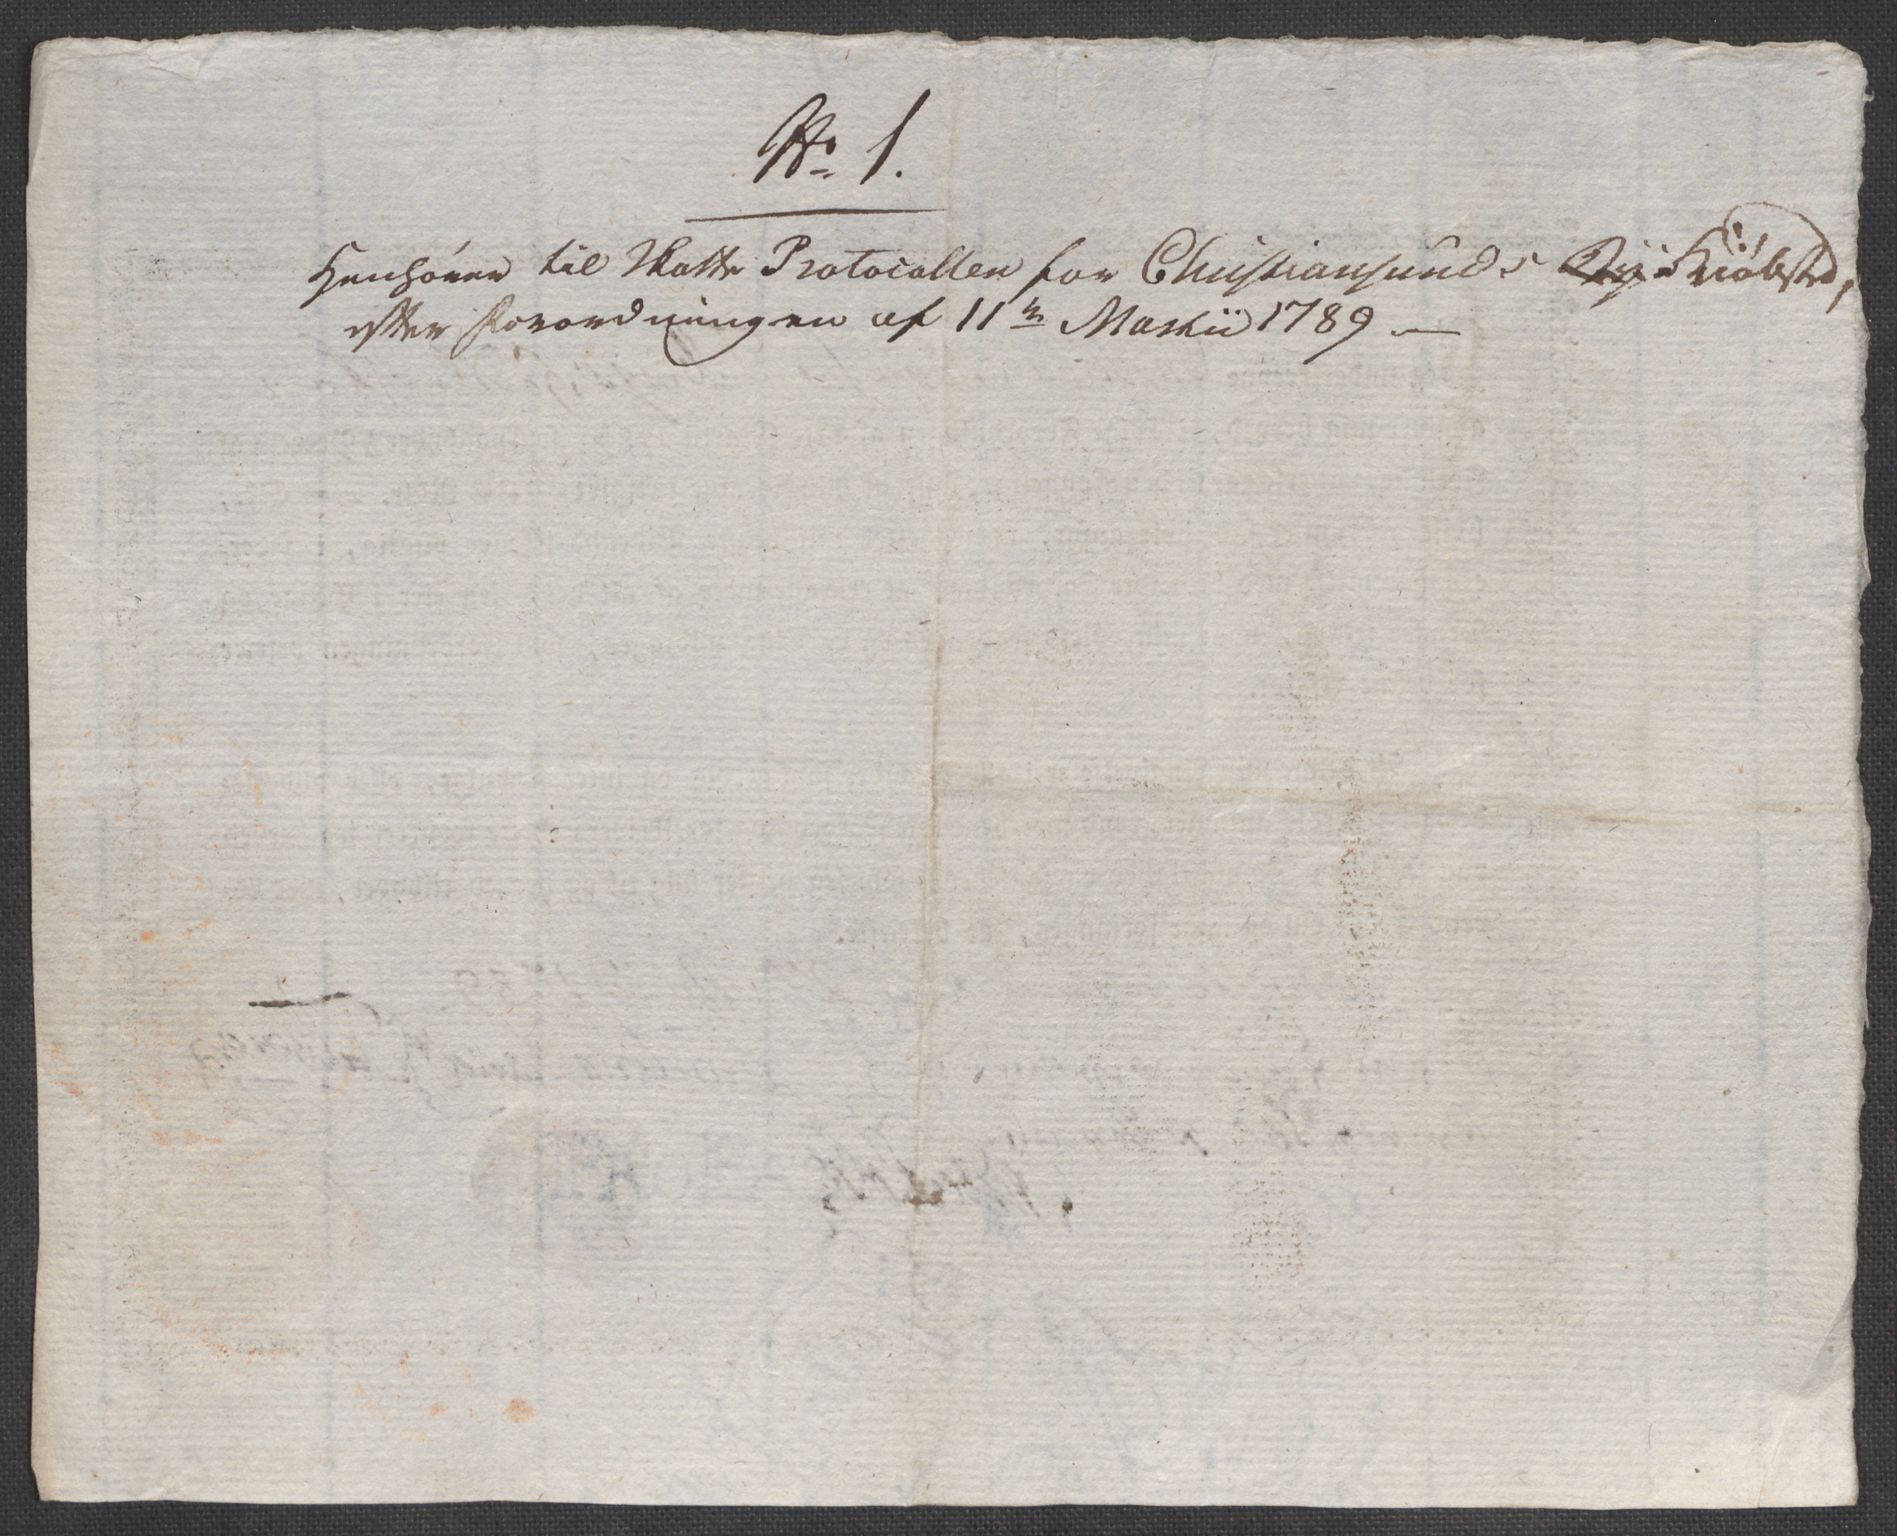 No 1.
Henhører til Skatte Protocollen for Christiansunds Kiøbsted,
efter Forordningen af 11te Martii 1789 —